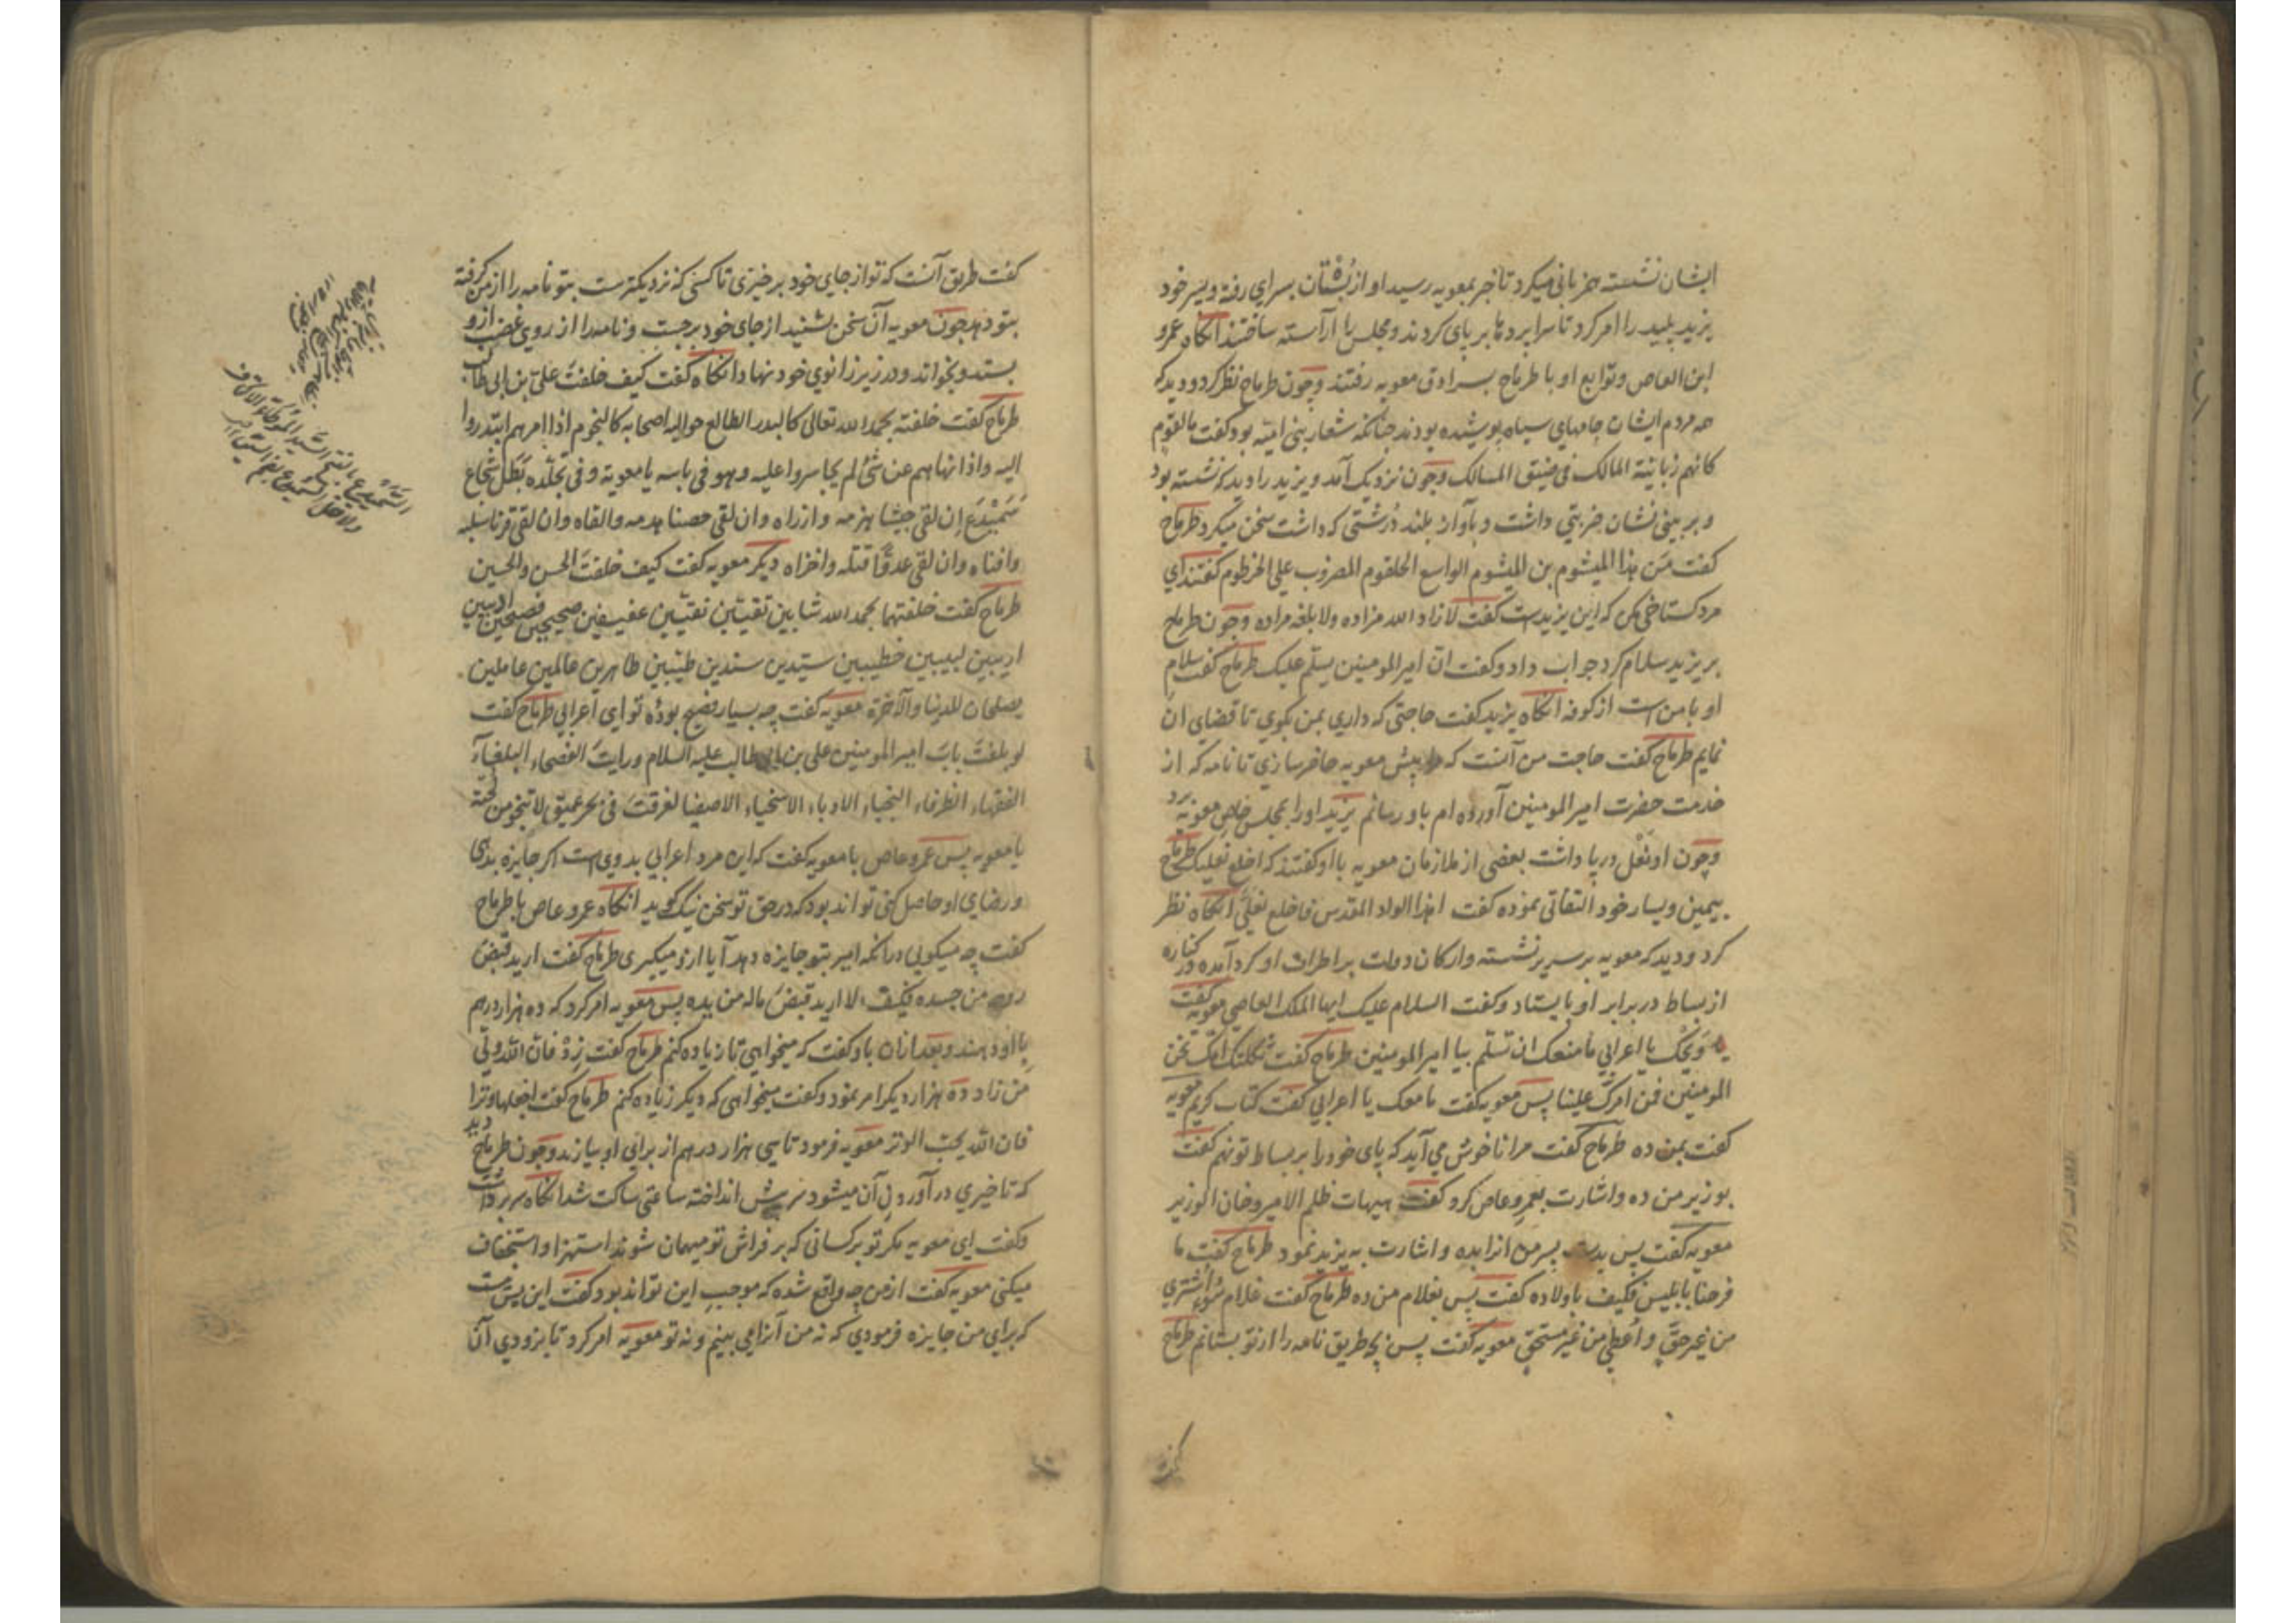 ایشان نشسته هم زبانی میکرد تا خبر بمعویه رسید او از بستان بسرای رفته و پسر خود
یزید پلید را امر کرد تا سرا پردها بر پای کردند و مجلس را آراسته ساختند آنکاه عمرو
ابن العاص و توابع او با طرماح بسرادق معویه رفتند وچون طرماح نظر کرد و دید که
همه مردم ایشان جامهای سیاه پوشیده بودند چنانکه شعار بنی امیه بود کفت ما لقوم
کانهم زبانیة المالک فی ضیق المسالک وچون نزدیک آمد و یزید را دید که نشسته بود
و بر بینی نشان ضربتی داشت و بآواز بلند درشتی که داشت سخن میکرد طرماح
کفت من هذا المیشوم بن المیشوم الواسع الحلقوم المضروب علی الخرطوم کفتند ای
مرد کستاخی مکن که این یزید است کفت لا زاد الله مزاده ولا بلغه مراده وچون طرماح
بر یزید سلام کرد جواب داد و کفت ان امیر المومنین یسلم علیک طرماح کفت سلام
او با من است از کوفه آنکاه یزید کفت حاجتی که داری بمن بکوی تا قضای آن
نمایم طرماح کفت حاجت من آنست که مرا پیش معویه حاضر سازی تا نامه که از
خدمت حضرت امیر المومنین آورده ام باو رسانم یزید او را بمجلس خاص معویه برد
وچون او نعل در پا داشت بعضی از ملازمان معویه با او کفتند که اخلع نعلیک طرماح
بیمین و یسار خود التفاتی نموده کفت اهذا الواد المقدس فاخلع نعلی آنکاه نظر
کرد و دید که معویه بر سریر نشسته و ارکان دولت بر اطراف او کرد آمده در کناره
از بساط در برابر او بایستاد و کفت السلام علیک ایها الملک العاصی معویه کفت
ویحک یا اعرابی ما منعک ان تسلم بیا امیر المومنین طرماح کفت ثکلتک امک نحن
المومنین فمن امرک علینا پس معویه کفت ما معک یا اعرابی کفت کتاب کریم معویه
کفت بمن ده طرماح کفت مرا ناخوش می آید که پای خود را بر بساط تو نهم کفت
بوزیر من ده و اشارت بعمرو عاص کرد کفت هیهات ظلم الامیر وخان الوزیر
معویه کفت پس بدست پسر من انرا بده و اشارت به یزید نمود طرماح کفت ما
فرحنا بابلیس فکیف باولاده کفت پس بغلام من ده طرماح کفت غلام سوء اشتری
من غیر حق و اعطی من غیر مستحق معویه کفت پس بچه طریق نامه را از تو بستانم طرماح
کفت
کفت طریق آنست که تو از جای خود برخیزی تا کسی که نزدیکترست بتو نامه را از من کرفته
بتو دهد چون معویه آن سخن بشنید از جای خود برجست و نامه را از روی غضب ازو
بستد و بخواند و در زیر زانوی خود نهاد آنکاه کفت کیف خلفت علی بن ابی طالب
طرماح کفت خلفته بحمد الله تعالی کالبدر الطالع حوالیه اصحابه کالنجوم اذا امرهم ابتدروا
الیه واذا نهاهم عن شئ لم یجاسروا علیه وهو فی باسه یا معویة وفی تجلده بطل شجاع
سمیدع ان لقی جیشا هزمه وازراه وان لقی حصنا هدمه والقاه وان لقی قرنا سلبه
وافناه وان لقی عدوا قتله واخزاه دیکر معویه کفت کیف خلفت الحسن والحسین
طرماح کفت خلفتهما بحمد الله شابین تقیین نقیین عفیفین صحیحین فصیحین ادیبین
ادیبین لبیبین خطیبین سیدین سندین طیبین طاهرین عالمین عاملین
یصلحان للدنیا والآخرة معویه کفت چه بسیار فصیح بودهٔ تو ای اعرابی طرماح کفت
لو بلغت باب امیر المومنین علی بن ابی طالب علیه السلام ورایت الفصحاء البلغاء
الفقهاء الظرفاء النجباء الادباء الاسخیاء الاصفیا لغرقت فی بحر عمیق لا تنجو من لجته
یا معویه پس عمرو عاص با معویه کفت که این مرد اعرابی بدوی است اکر جایزه بدهی
و رضای او حاصل کنی تواند بود که در حق تو سخن نیک کوید آنکاه عمرو عاص با طرماح
کفت چه میکویی در آنکه امیر بتو جایزه دهد آیا ازو میکیری طرماح کفت ارید قبض
روحه من جسده فکیف لا ارید قبض ماله من یده پس معویه امر کرد که ده هزار درهم
باو دهند و بعد ازان باو کفت که میخواهی تا زیاده کنم طرماح کفت زد فان الله ولی
من زاد ده هزار دیکر امر نمود و کفت میخواهی که دیکر زیاده کنم طرماح کفت اجعلها وترا
فان الله یحب الوتر معویه فرمود تا سی هزار درهم از برای او بیارند وچون طرماح دید
که تاخیری در آوردن آن میشود سر پیش انداخته ساعتی ساکت شد آنکاه سر برداشت
وکفت ای معویه مکر تو بر کسانی که بر فراش تو میهمان شوند استهزا و استخفاف
میکنی معویه کفت از من چه واقع شده که موجب این تواند بود کفت این بس است
که برای من جایزه فرمودی که نه من آنرا می بینم و نه تو معویه امر کرد تا بزودی آن
السمیدع بالفتح السید الموطأ الاکناف
ولا تقل السمیدع بضم السین